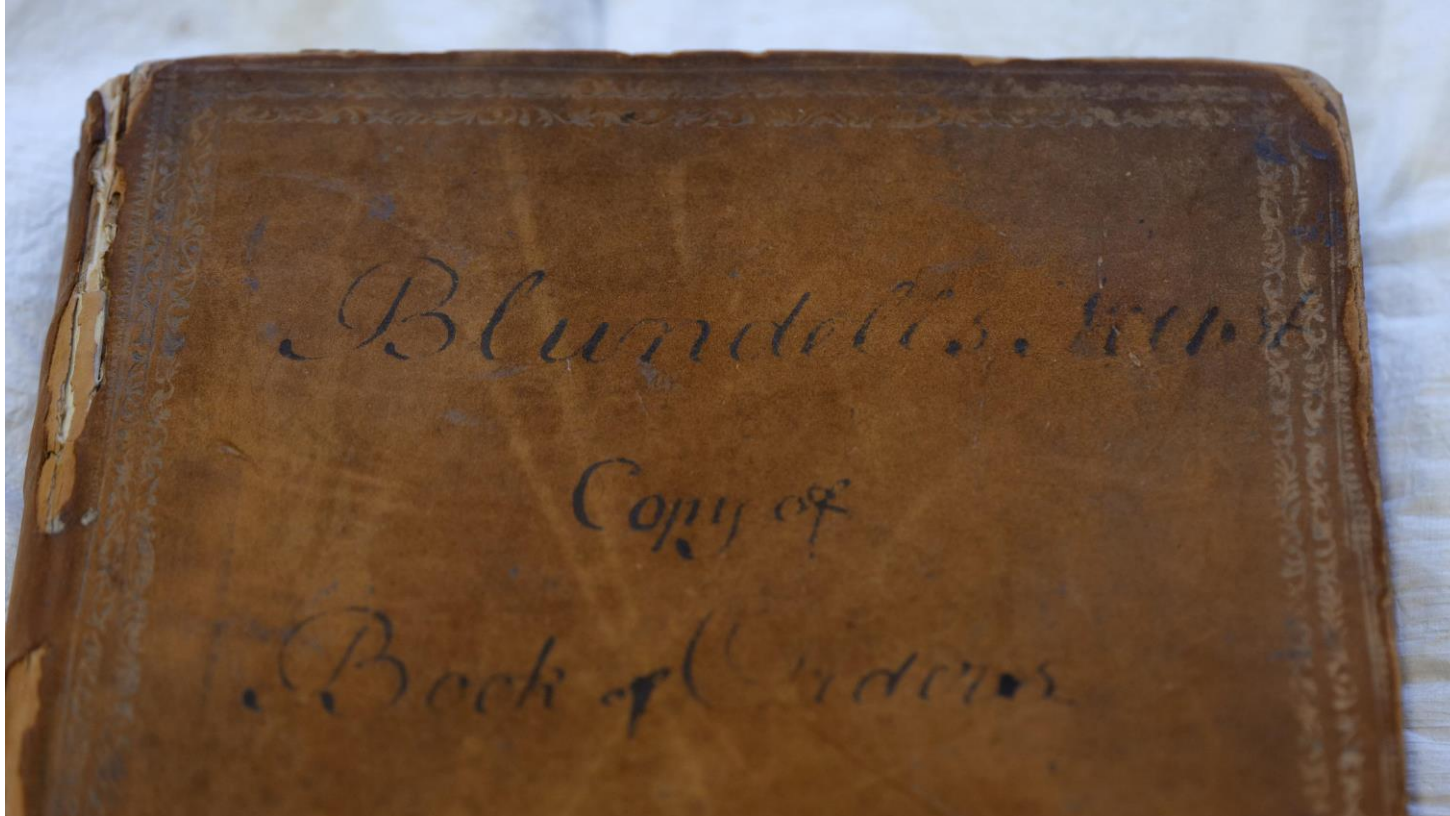 Blundell's Trust
Copy of
Book of Orders